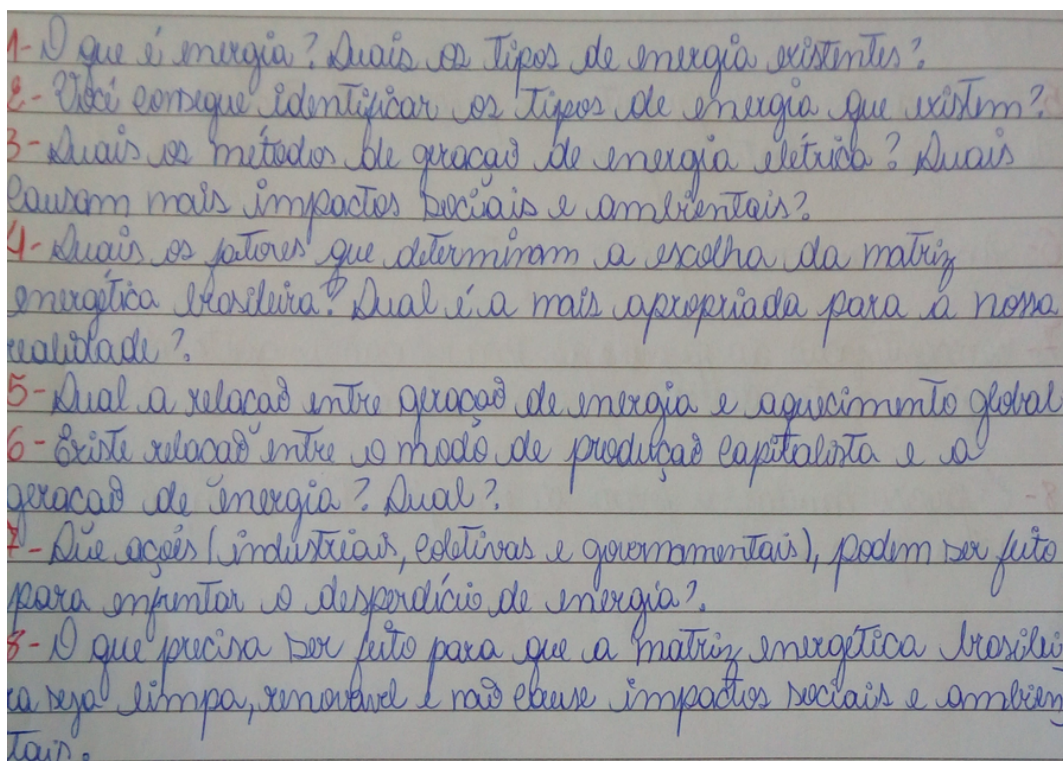 1- O que é energia? Quais os Tipos de energia existentes?
2- Você consegue identificar os Tipos de energia que existem?
3- Quais os métodos de geração de energia elétrica? Quais
causam mais impactos sociais e ambientais?
4- Quais os fatores que determinam a escolha da matriz
energética brasileira? Qual é a mais apropriada para a nossa
realidade?
5- Qual a relacaõ entre geracaõ de energia e aquecimento global
6- Existe relacaõ entre o modo de produçaõ capitalista e a
geracaõ de energia? Qual?
7- Que açoẽs (industriais, coletivas e governamentais), podem ser feito
para enfrentar o desperdício de energia?
8- O que precisa ser feito para que a matriz energética brasilei
ra seja limpa, renovável e naõ cause impactos sociais e ambien
tais.